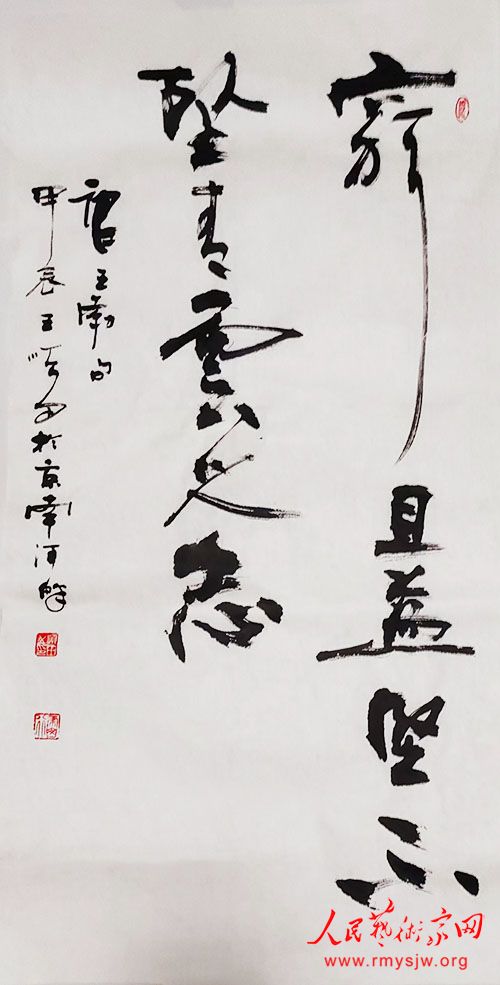 穷且益坚不
坠青云之志
唐王勃句
甲辰王 于京南河畔
人民艺术家网
www.rmysjw.org